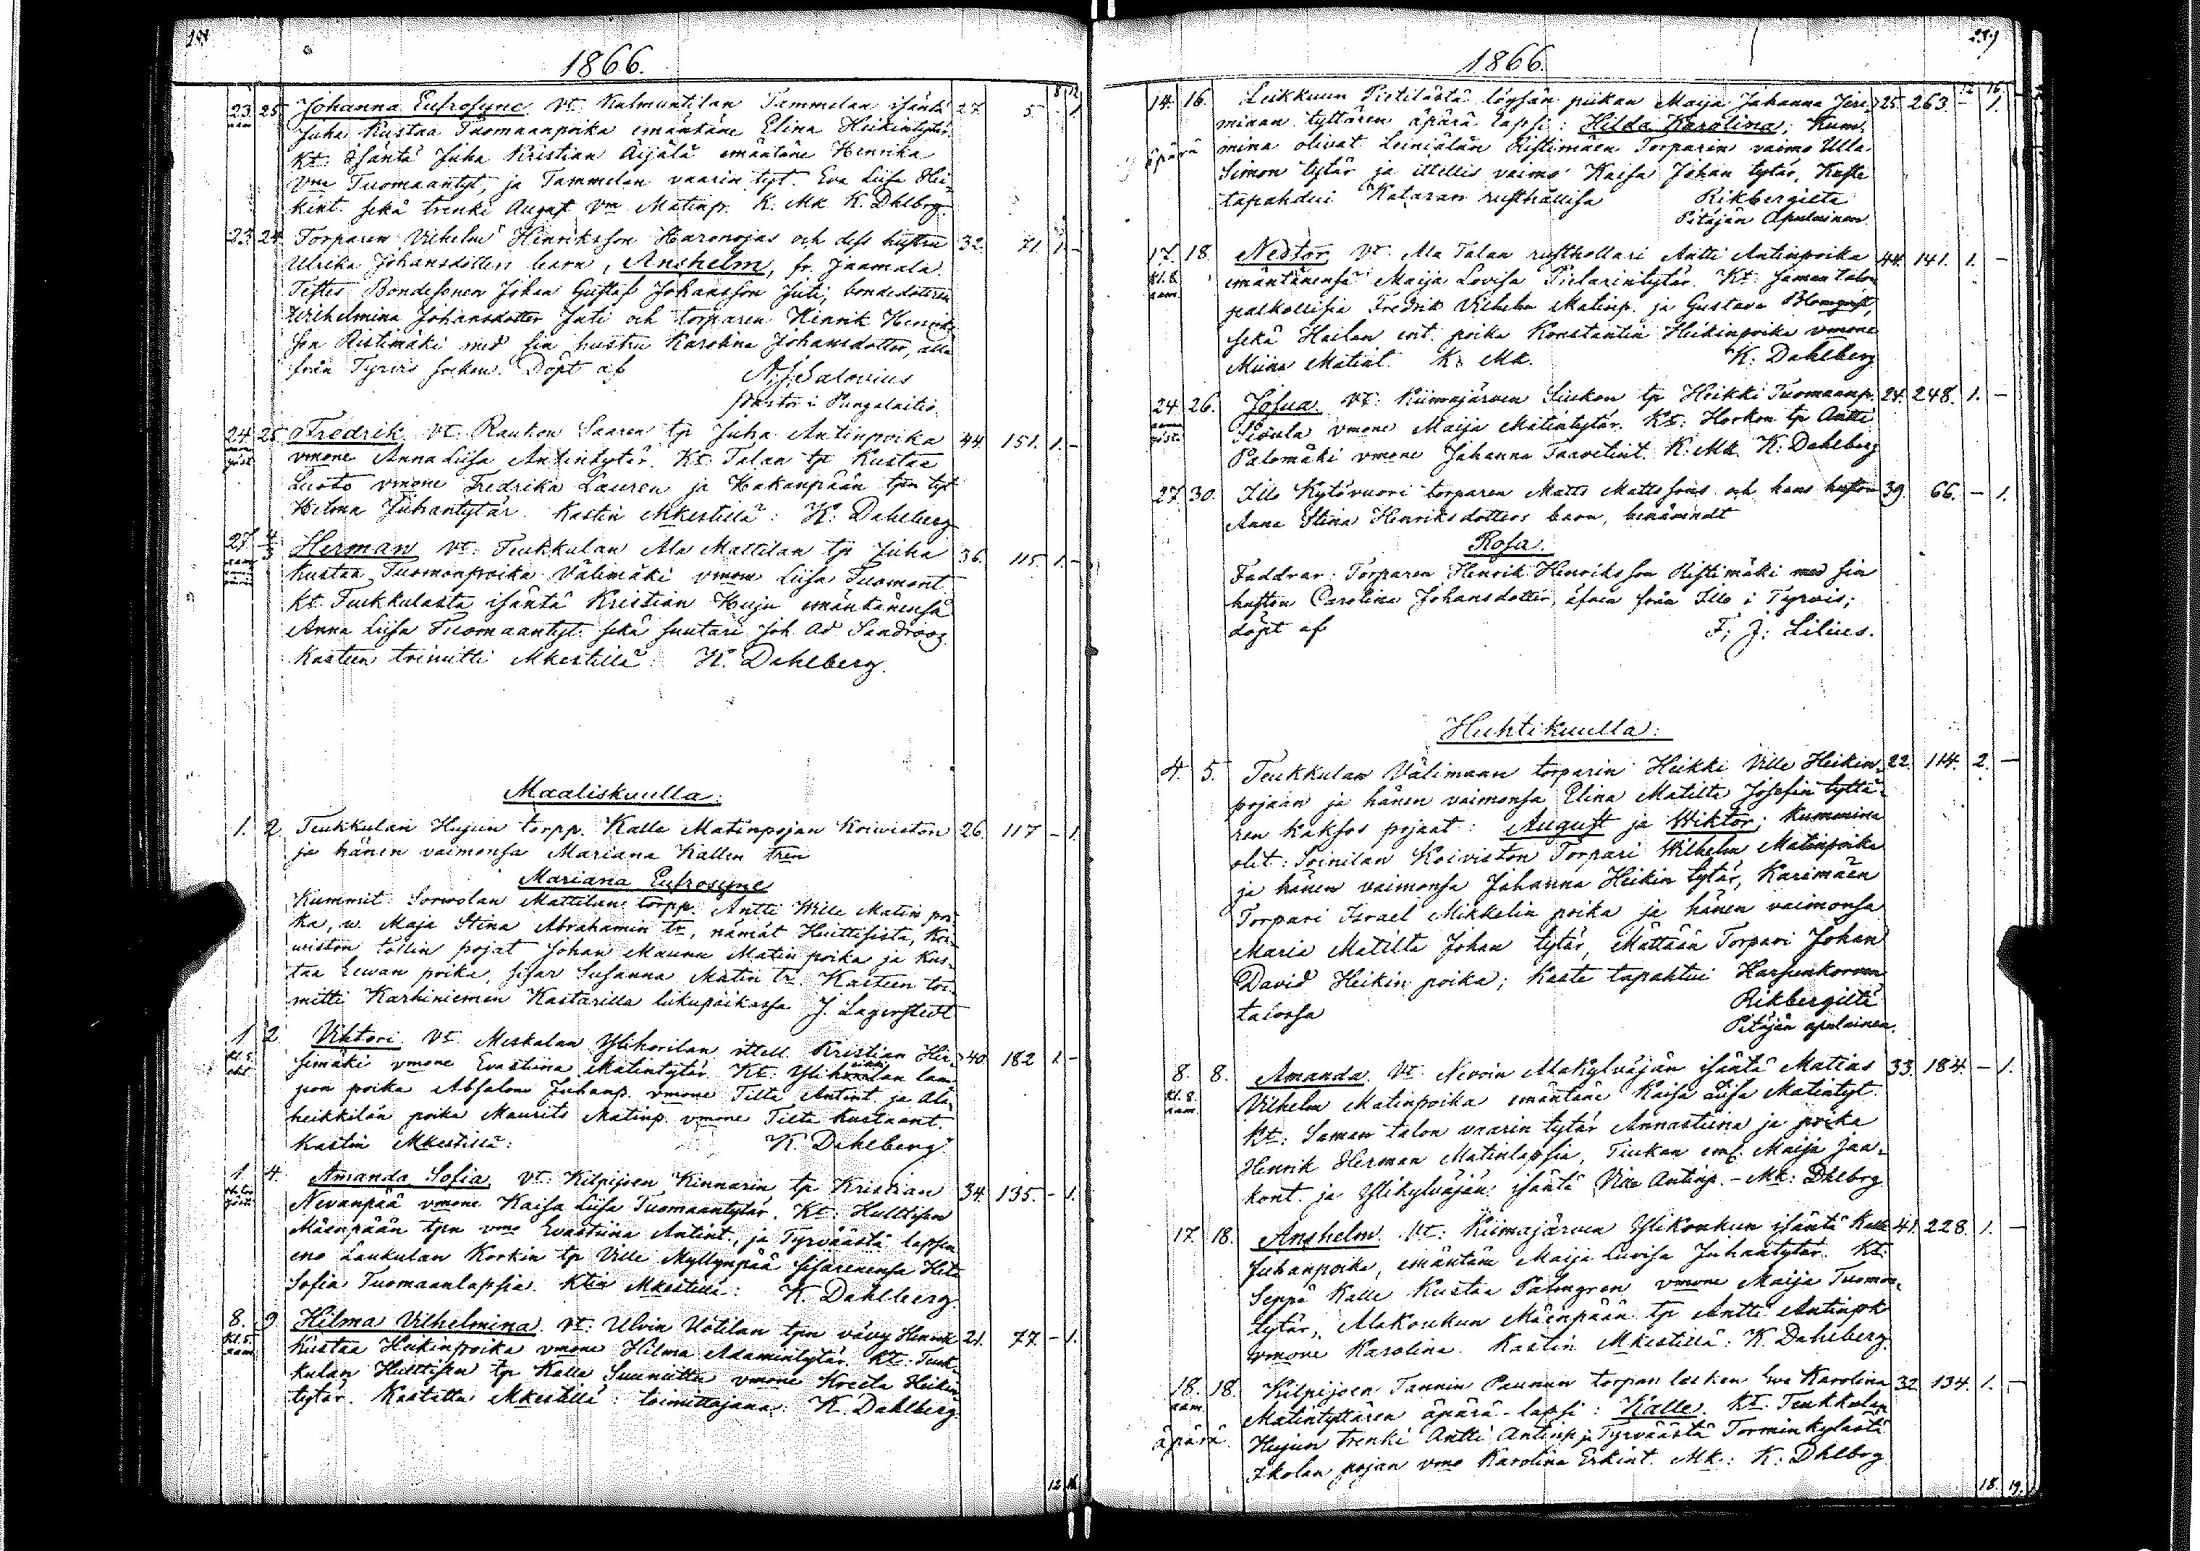 1866.
8 12
23 25 Johanna Eufrosyne Vt. Kalmuntilan Tammelan isäntä 27 5 - 1
Juha Kustaa Tuomaanpoika emäntäne Elina Heikintytär.
Kt. Isäntä Juha Kristian Äijälä emäntäne Henrika
Vme Tuomaantyt, ja Tammelan vaarin tyt. Eva Liisa Hei-
kint. sekä trenki August Vm Matinp. K. Mk K. Dhlbrg.
23. 24 Torparen Vilhelm Henriksson Haronojas och dess hustru 32. 71 1 -
Ulrika Johansdotters barn, Anshelm, fr. Jaamala.
Testes Bondesonen Johan Gustaf Johansson Juti, bondedottren
Wilhelmina Johansdotter Juti och torparen Henrik Henriks-
son Ristimäki med sin hustru Karolina Johansdotter, alla
från Tyrvis socken. Döpt af A. J. Salovius
Pastor i Pungalaitio.
24 25 Fredrik Vt. Raukon Saaren tp Juha Antinpoika 44 151. 1. -
vmone Anna Liisa Antintytär. Kt. Talan tp Kustaa
Luoto vmone Fredrika Lauren ja Hakanpään tpn tyt
Hilma Juhantytär. Kastin Mkestillä: K. Dahlberg
27 Herman Vt. Teukkulan Ala Mattilan tp Juha 36. 115. 1. -
Kustaa Tuomanpoika Välimäki vmone Liisa Tuomont.
Kt. Teukkulasta isäntä Kristian Huju emäntänensä
Anna Liisa Tuomaantyt. sekä suutari Joh. Ad. Sandroos
Kasteen toimitti Mkestillä: K. Dahlberg.
Maaliskuulla:
1. 2. Teukkulan Hujun torpp. Kalle Matinpojan Koiviston 26. 117 - 1.
ja hänen vaimonsa Mariana Kallen tren
Mariana Eufrosyne
Kummit: Sorvolan Mattilan torpp. Antti Wille Matin poi-
ka, w. Maja Stina Abrahamin tr, nämät Huittisista, Koi-
wiston töllin pojat Johan Maunu Matin poika ja Kus-
taa Eewan poika, sisar Susanna Matin tr. Kasteen toi-
mitti Karhiniemen Kastarilla likupaikassa J. Lagerstedt
1 2 Vihtori Vt. Meskalan Ylihorilan ittell. Kristian Hir- 40. 182 1. -
simäki vmone Evastiina Matintytär. Kt. lam-
puon poika Absalom Juhanp. vmone Tilta Antint. ja Ala-
heikkilän poika Maurits Matinp. vmone Tilta Kustaant.
Kastin Mkestillä: K. Dahlberg
1. 4. Amanda Sofia, Vt. Kilpijoen Kinnarin tp Kristian 34. 135. - 1.
Nevanpää vmone Kaisa Liisa Tuomaantytär. Kt. Hulttisen
Mäenpään tpn vmo Evastiina Antint., ja Tyrväästä lapsen
eno Laukulan Korkin tp Ville Myllynpää sisarenensa
Sofia Tuomaanlapsia. Ktin Mkestillä: K. Dahlberg.
8. 9. Hilma Vilhelmina. Vt. Ulvin Uotilan tpn vävy Henrik 21. 77. - 1.
kl. 5. Kustaa Heikinpoika vmone Hilma Adamintytär. Kt. Teuk-
kulan Hulttisen tp Kalle Suuniittu vmone Kreeta Heikin-
tytär. Kastettu Mkestillä: toimittajana: K. Dahlberg.
12 16
1866.
12 16.
14. 16. Leikkuun Pietilästä löysän piikan Maija Johanna Jere- 25. 263 - 1.
miaan tyttären äpärä lapsi: Hilda Karolina; Kum-
äpärä mina olivat Leiniälän Ristimäen Torparin vaimo Ulla
Simon tytär ja ittellis vaimo Kaisa Johan tytär, Kaste
tapahdui Kataran rusthollisa Rikbergiltä
Pitäjän Apulainen
17. 18. Nestor, Vt. Ala Talan rusthollari Antti Antinpoika 44 141. 1. -
kl. 8. emäntänensä Maija Lovisa Pielarintytär. Kt. saman talon
palkollisia Fredrik Vilhelm Matinp. ja Gustava Blomqvist,
sekä Hailan ent. poika Konstantin Heikinpoika vmone
Miina Matint. K. Mk. K. Dahlberg
24. 26. Josua Vt. Kiimajärven Liukon tp Heikki Tuomaanp. 24. 248. 1. -
Sivula vmone Maija Matintytär. Kt. Horkon tp Antti
Palomäki vmone Johanna Taavetint. K. Mk. K. Dahlberg
27. 30. Illo Kytövuori torparen Matts Mattssons och hans hustru 39. 66. - 1.
Anna Stina Henriksdotters barn, benämndt
Rosa.
Faddrar: Torparen Henrik Henriksson Ristimäki med sin
hustru Carolina Johansdotter, äfven från Illo i Tyrvis;
döpt af F. J. Lilius.
Huhtikuulla:
4. 5. Teukkulan Välimaan torparin Heikki Ville Heikin- 22. 114. 2. -
pojaan ja hänen vaimonsa Elina Matilta Josefin tyttä-
ren kaksos pojaat: August ja Wiktor; Kummina
olit: Soinilan Koiviston Torpari Wilhelm Matinpoika
ja hänen vaimonsa Johanna Heikin tytär, Karimäen
Torpari Israel Mikkelin poika ja hänen vaimonsa
Maria Matilta Johan tytär, Mättään Torpari Johan
David Heikin poika; Kaste tapahtui Harjunkorvan
talossa Rikbergiltä
Pitäjän apulainen.
8. 8. Amanda. Vt. Nevoin Alakylväjän isäntä Matias 33. 184. - 1.
kl. 8. Vilhelm Matinpoika emäntäne Kaisa Liisa Matintyt.
Kt: Saman talon vaarin tytär Annastiina ja poika
Henrik Herman Matinlapsia, Tiukan em. Maija Jaa-
kont. ja Ylikylväjän isäntä Antinp. - Mk: Dhlbrg.
17. 18. Anshelm. Vt: Kiimajärven Ylikoukun isäntä Kalle 41. 228. 1. -
Juhanpoika, emäntäne Maija Luvisa Juhantytär. Kt:
Seppä Kalle Kustaa Palmgren vmone Maija Tuomon-
tytär, Alakoukun Mäenpään tp Antti Antinpk
vmone Karolina. Kastin Mkestillä: K. Dahlberg.
18. 18. Kilpijoen Tannin Paunun torpan lesken Eva Karolina 32. 134. 1. -
Matintyttären äpärä-lapsi: Kalle. Kt. Teukkulan
äpärä. Hujun trenki Antti Antinp ja Tyrväästä Torminkylästä
Ikolan pojan vmo Karolina Erkint. Mk: K. Dhlbrg
18. 19.